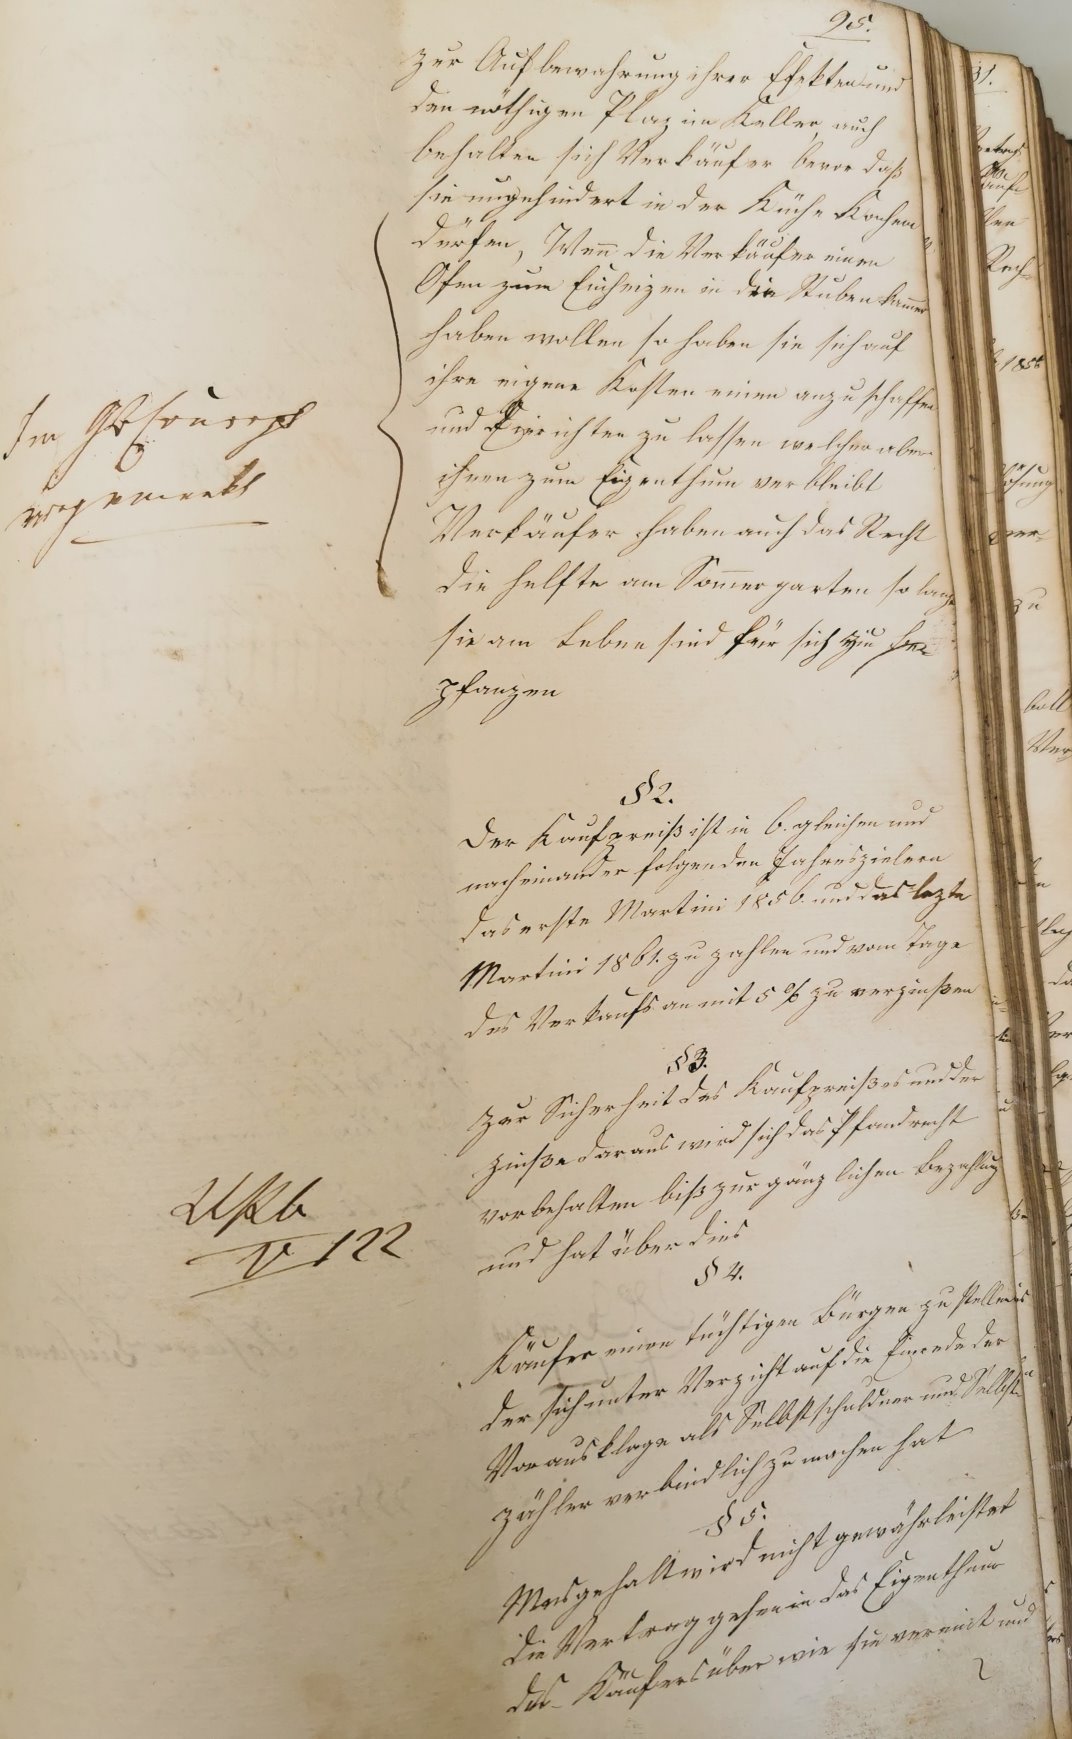 95.
zur Aufbewahrung ihrer Efekten und
den nöthigen Plaz im Keller, auch
behalten sich Verkäufer bevor daß
sie ungehindert in der Küche Kochen
dürfen, Wenn die Verkäufer einen
Ofen zum Einheizen in die Stubenkammer
haben wollen so haben sie sich auf
ihre eigene Kosten einen anzuschaffen
und Einrichten zu lassen welcher aber
ihnen zum Eigenthum verbleibt
Verkäufer haben auch das Recht
die helfte am Sommergarten so lang
sie am Leben sind für sich zu be-
pflanzen
Im
vorgemerkt
§ 2.
Der Kaufpreiß ist in 6. gleichen und
nacheinander folgenden Jahreszielern
das erste Martini 1856. und das lezte
Martini 1861. zu zahlen und vom Tage
des Verkaufs an mit 5 % zu verzinßen
§ 3.
Zur Sicherheit des Kaufpreißes und der
Zinße daraus wird sich das Pfandrecht
vorbehalten biß zur gänzlichen Bezahlung
und hat über dies
V 122
§ 4.
Käufer einen tüchtigen Bürgen zu stellen
der sich unter Verzicht auf die Einrede der
Vorausklage als Selbstschuldner und Selbst-
zahler verbindlich zu machen hat
§ 5.
Mesgehalt wird nicht gewährleistet
die Vertrag gehen in das Eigenthum
des Käufers über wie sie vereint und